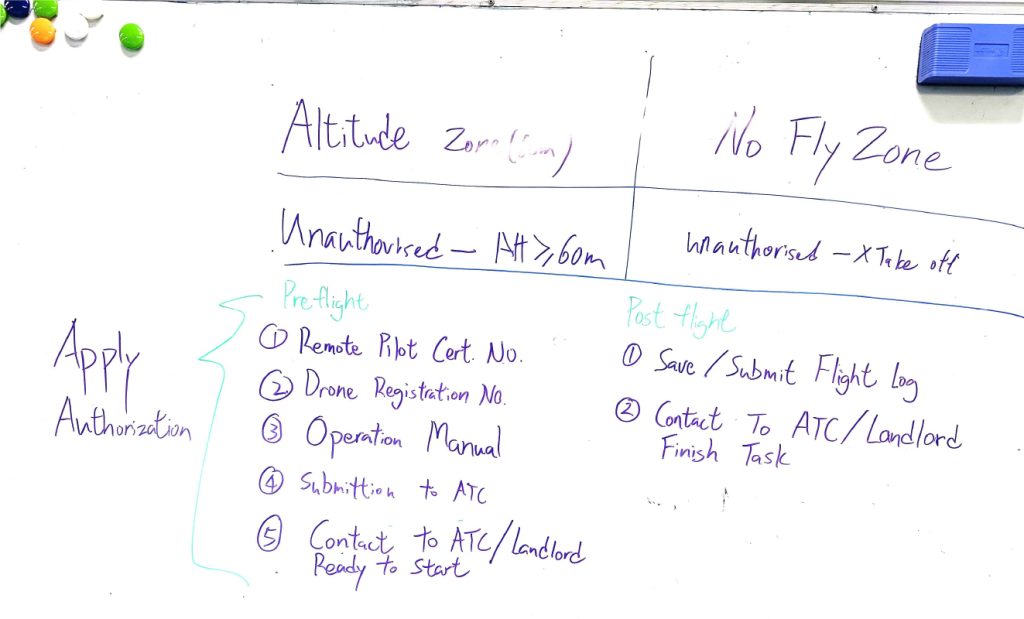 Altitude Zone (60m)
No Fly Zone
Unauthourised — Alt ⩾ 60m
Unauthorised — X Take off
Preflight
① Remote Pilot Cert. No.
② Drone Registration No.
③ Operation Manual
④ Submittion to ATC
⑤ Contact to ATC/Landlord
Ready to Start
Post flight
① Save/Submit Flight Log
② Contact To ATC/Landlord
Finish Task
Apply
Authorization